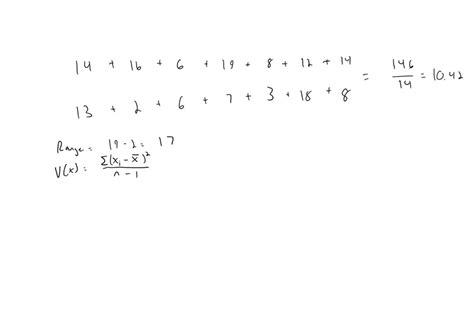 14 + 16 + 6 + 19 + 8 + 12 + 14
13 + 2 + 6 + 7 + 3 + 18 + 8
= 146/14 = 10.42
Range = 19-2 = 17
V(x) = Σ(xi - x̄)²/n-1